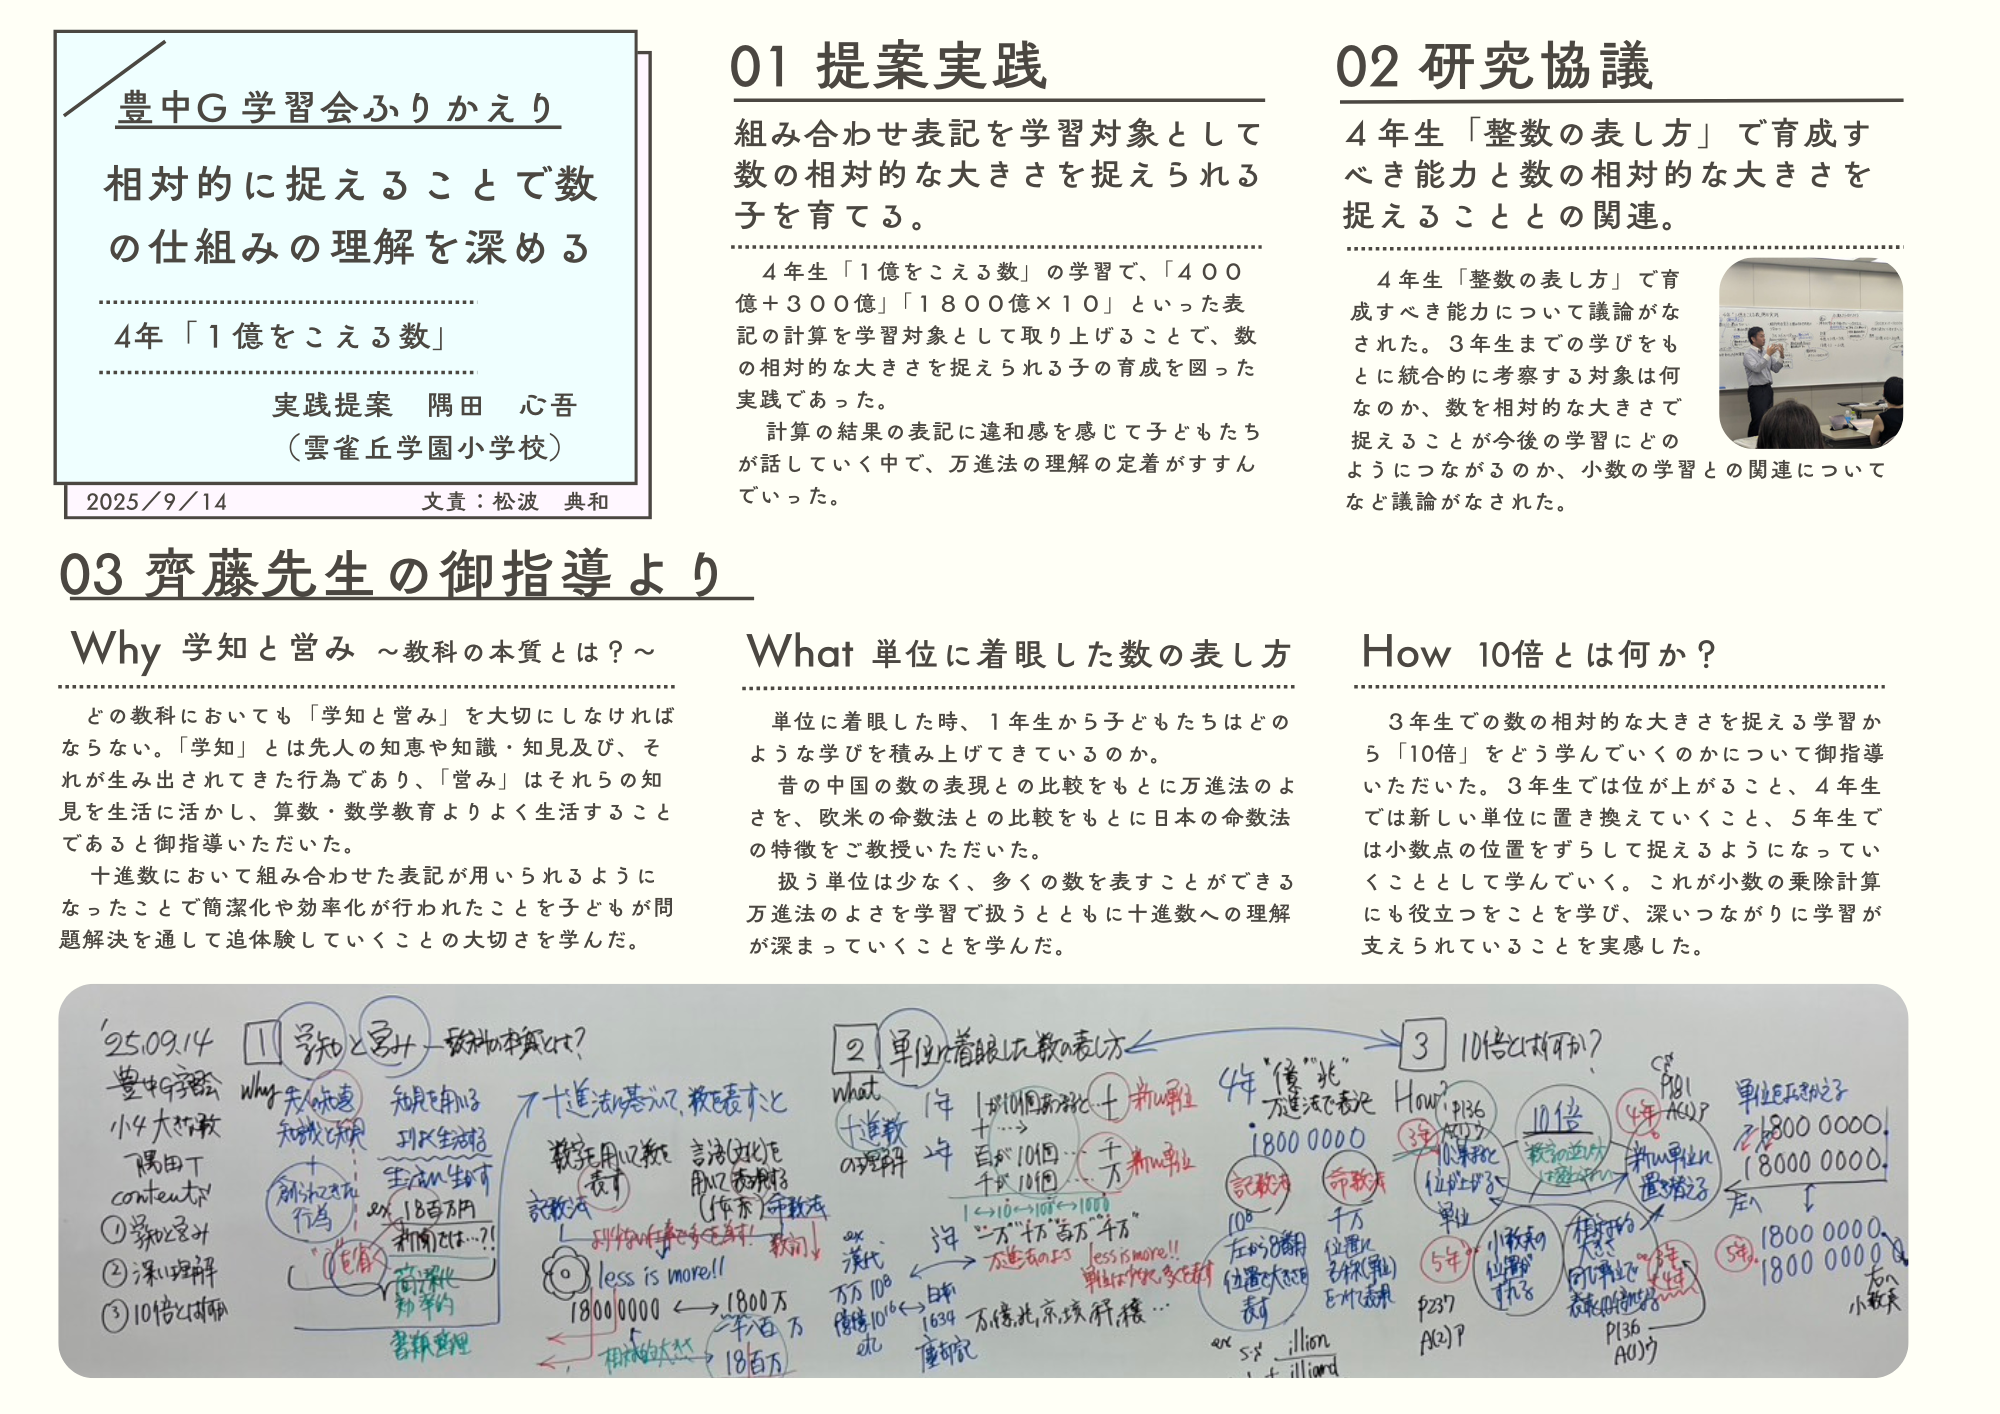 豊中G 学習会ふりかえり
相対的に捉えることで数
の仕組みの理解を深める
4年「１億をこえる数」
実践提案　隅田　心吾
（雲雀丘学園小学校）
2025／9／14
文責：松波　典和
01 提案実践
組み合わせ表記を学習対象として
数の相対的な大きさを捉えられる
子を育てる。
４年生「１億をこえる数」の学習で、「４００
億＋３００億」「１８００億×１０」といった表
記の計算を学習対象として取り上げることで、数
の相対的な大きさを捉えられる子の育成を図った
実践であった。
計算の結果の表記に違和感を感じて子どもたち
が話していく中で、万進法の理解の定着がすすん
でいった。
02 研究協議
４年生「整数の表し方」で育成す
べき能力と数の相対的な大きさを
捉えることとの関連。
４年生「整数の表し方」で育
成すべき能力について議論がな
された。３年生までの学びをも
とに統合的に考察する対象は何
なのか、数を相対的な大きさで
捉えることが今後の学習にどの
ようにつながるのか、小数の学習との関連について
など議論がなされた。
03 齊藤先生の御指導より
Why 学知と営み ～教科の本質とは？～
どの教科においても「学知と営み」を大切にしなければ
ならない。「学知」とは先人の知恵や知識・知見及び、そ
れが生み出されてきた行為であり、「営み」はそれらの知
見を生活に活かし、算数・数学教育よりよく生活すること
であると御指導いただいた。
十進数において組み合わせた表記が用いられるように
なったことで簡潔化や効率化が行われたことを子どもが問
題解決を通して追体験していくことの大切さを学んだ。
What 単位に着眼した数の表し方
単位に着眼した時、１年生から子どもたちはどの
ような学びを積み上げてきているのか。
昔の中国の数の表現との比較をもとに万進法のよ
さを、欧米の命数法との比較をもとに日本の命数法
の特徴をご教授いただいた。
扱う単位は少なく、多くの数を表すことができる
万進法のよさを学習で扱うとともに十進数への理解
が深まっていくことを学んだ。
How 10倍とは何か？
３年生での数の相対的な大きさを捉える学習か
ら「10倍」をどう学んでいくのかについて御指導
いただいた。３年生では位が上がること、４年生
では新しい単位に置き換えていくこと、５年生で
は小数点の位置をずらして捉えるようになってい
くこととして学んでいく。これが小数の乗除計算
にも役立つをことを学び、深いつながりに学習が
支えられていることを実感した。
'25.09.14
豊中G学習会
小4 大きな数
隅田T
contents
①学知と営み
②深い理解
③10倍とは何か
1 学知と営み ─教科の本質とは?
Why
先人の知恵
知識と知見
+
創られてきた
行為
知見を用いる
よりよく生活する
生活に生かす
ex 18百万円
新聞では…?!
簡潔化
効率的
書類整理
十進法に基づいて、数を表すこと
数字を用いて数を
表す
記数法
言語(文化)を
用いて表現する
(体系)命数法
less is more!!
18000000 ↔ 1800万
一千八百万
相対的大きさ
18百万
2 単位に着眼した数の表し方
What
十進数
の理解
1年 1が10個あると…十 新しい単位
2年 百が10個…千
千が10個…万 新しい単位
1↔10↔100↔1000
3年 "一万"十万"百万"千万"
万進法のよさ less is more!!
単位は少なく、多くを表す
ex
漢代
万万 10⁸
億億 10¹⁶
etc
日本
1634
塵劫記
万、億、兆、京、垓、秭、穣…
4年 "億""兆"
万進法で表記
18000000
記数法
命数法
10⁸
左から8番目
位置で大きさを
表す
千万
位置に
名称(単位)
をつけて表現
illion
illiard
3 10倍とは何か?
How?
P136
3年
10集まると
位が上がる
単位
10倍
数字の並び方
は変わらない
4年
P181
A(1)ア
新しい単位に
置き替える
5年
小数点の
位置が
ずれる
P237
A(2)ア
相対的な
大きさ
同じ単位で
P136
A(1)ウ
単位をおきかえる
1800 0000.
18000 0000.
左へ
5年
1800 0000.
1800 0000.
右へ
小数点